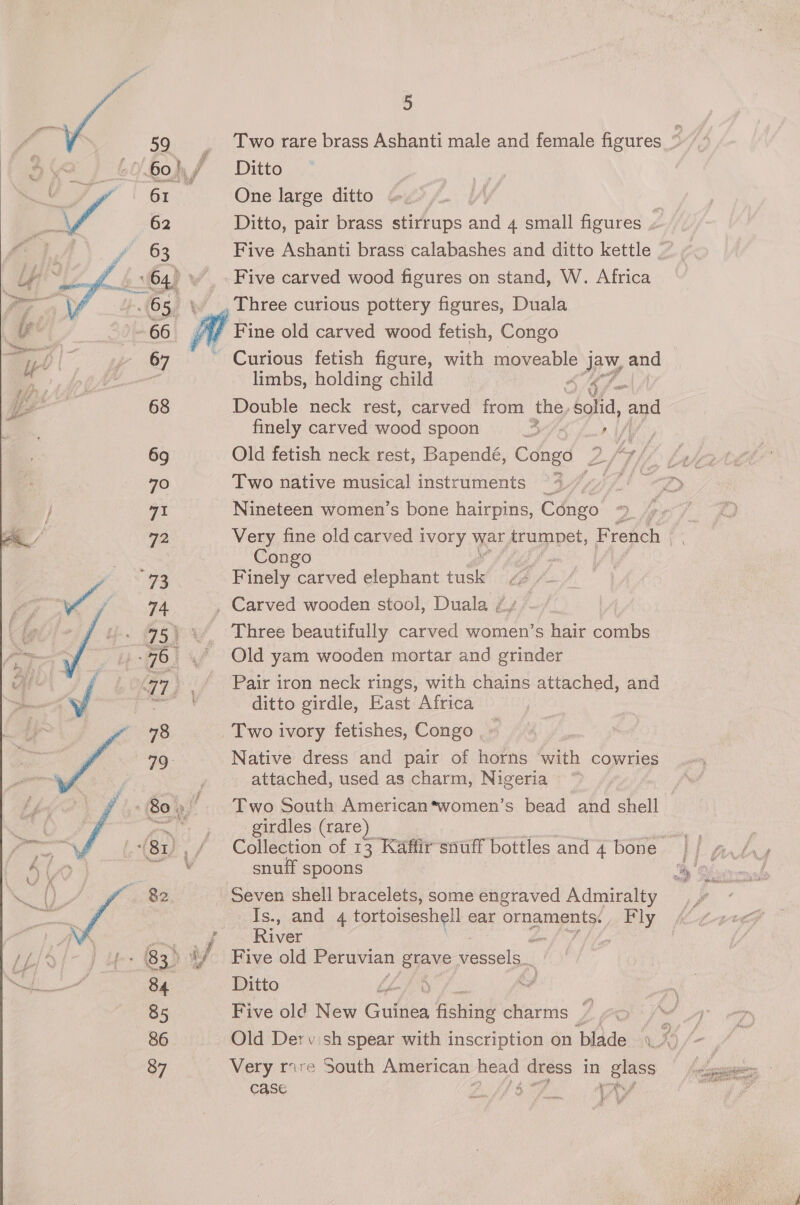 5
59 Two rare brass Ashanti male and female figures
60 Ditto
61 One large ditto
62 Ditto, pair brass stirrups and 4 small figures
63 Five Ashanti brass calabashes and ditto kettle
64 Five carved wood figures on stand, W. Africa
65 Three curious pottery figures, Duala
66 Fine old carved wood fetish, Congo
67 Curious fetish figure, with moveable jaw, and
limbs, holding child
68 Double neck rest, carved from the solid, and
finely carved wood spoon
69 Old fetish neck rest, Bapendé, Congo
70 Two native musical instruments
71 Nineteen women's bone hairpins, Congo
72 Very fine old carved ivory war trumpet, French
Congo
73 Finely carved elephant tusk
74 Carved wooden stool, Duala
75 Three beautifully carved women's hair combs
76 Old yam wooden mortar and grinder
77 Pair iron neck rings, with chains attached, and
ditto girdle, East Africa
78 Two ivory fetishes, Congo
79 Native dress and pair of horns with cowries
attached, used as charm, Nigeria
80 Two South American women's bead and shell
girdles (rare)
81 Collection of 13 Kaffir snuff bottles and 4 bone
snuff spoons
82 Seven shell bracelets, some engraved Admiralty
Is., and 4 tortoiseshell ear ornaments, Fly
River
83 Five old Peruvian grave vessels
84 Ditto
85 Five old New Guinea fishing charms
86 Old Dervish spear with inscription on blade
87 Very rare South American head dress in glass
case